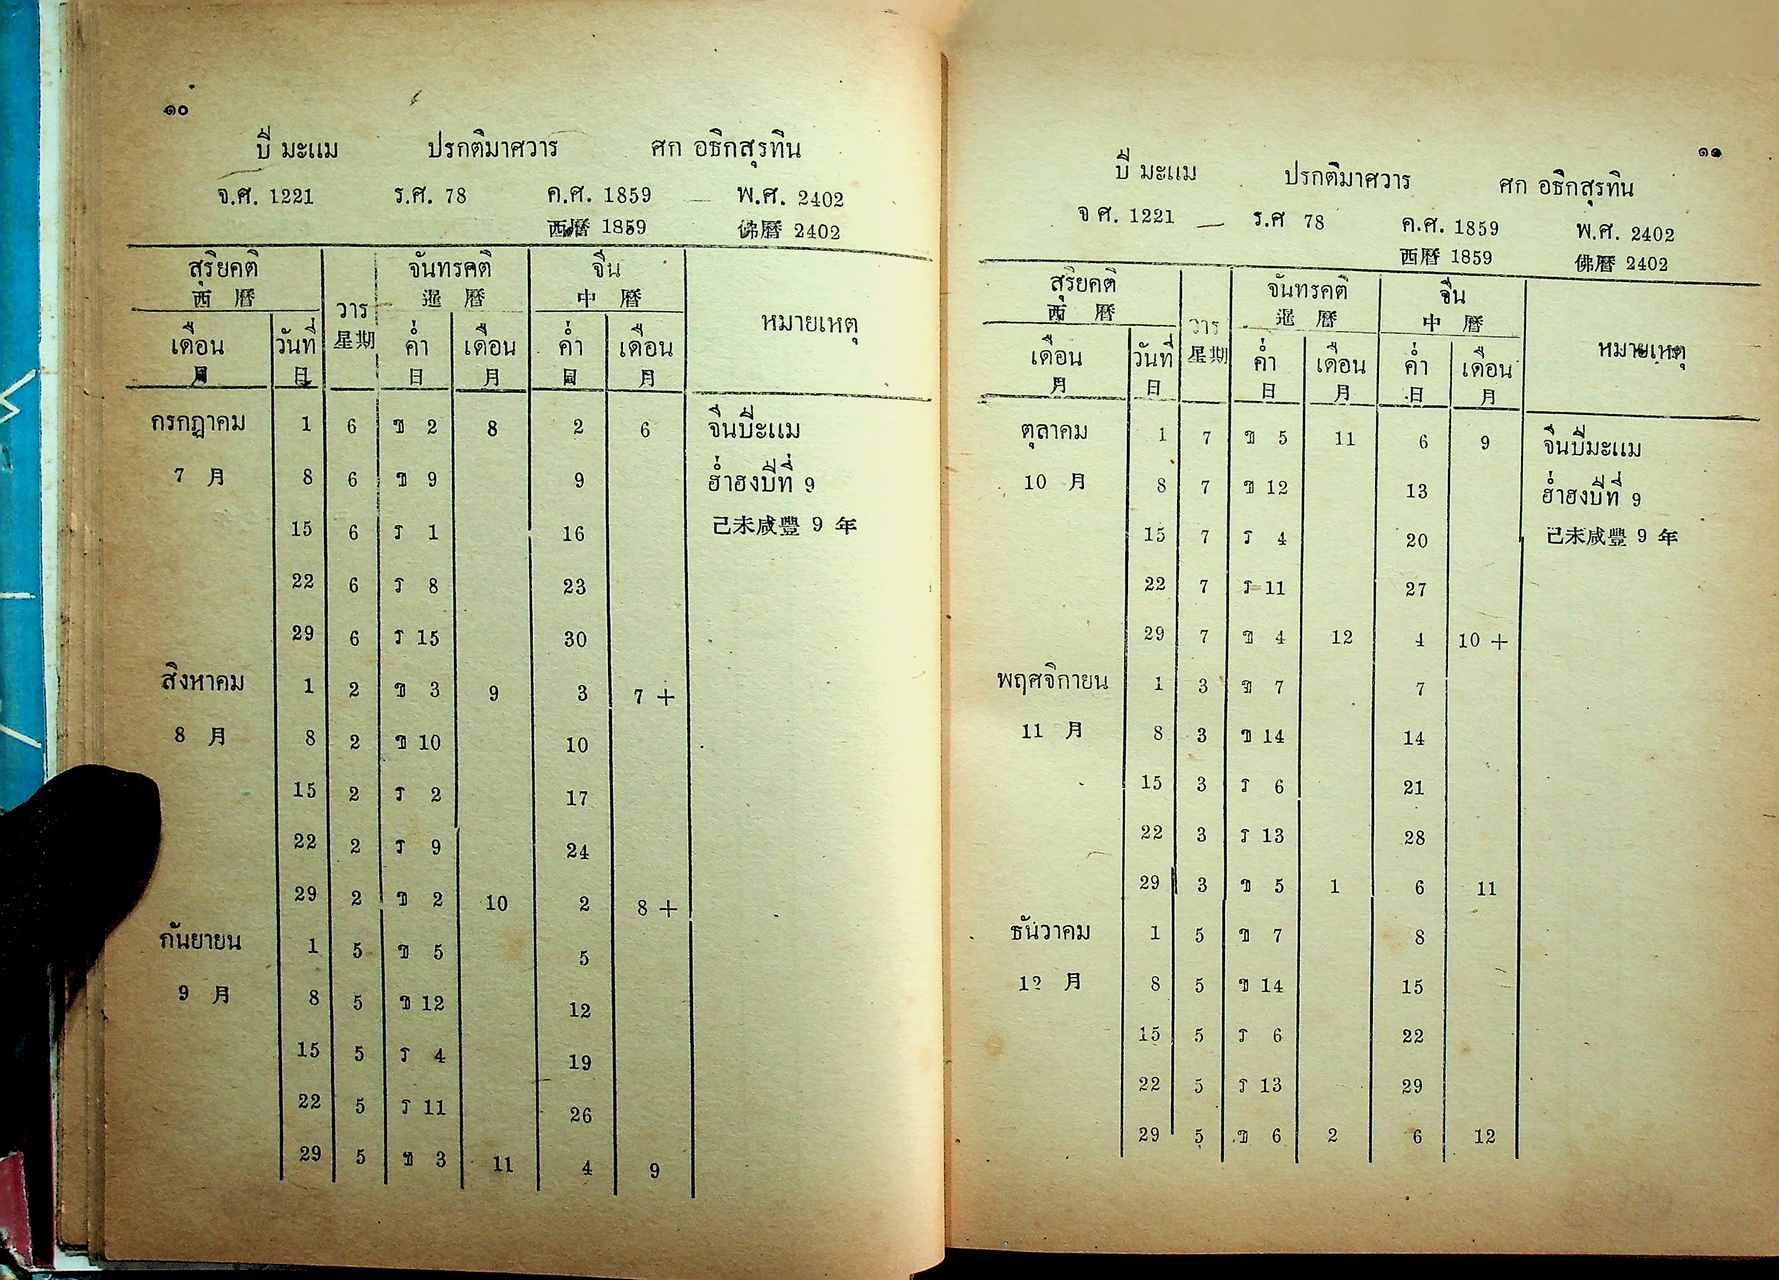 ๑๐
ปี มะแม ปรกติมาศวาร ศก อธิกสุรทิน
จ.ศ. 1221 ร.ศ. 78 ค.ศ. 1859 พ.ศ. 2402
西曆 1859 佛曆 2402
สุริยคติ วาร จันทรคติ จีน หมายเหตุ
西 曆 星期 暹 曆 中 曆
เดือน วันที่ ค่ำ เดือน ค่ำ เดือน
月 日 日 月 日 月
กรกฎาคม 1 6 ข 2 8 2 6 จีนปีะแม
7 月 8 6 ข 9 9 ฮ่ำฮงปีที่ 9
15 6 ร 1 16 己未咸豐 9 年
22 6 ร 8 23
29 6 ร 15 30
สิงหาคม 1 2 ข 3 9 3 7 +
8 月 8 2 ข 10 10
15 2 ร 2 17
22 2 ร 9 24
29 2 ข 2 10 2 8 +
กันยายน 1 5 ข 5 5
9 月 8 5 ข 12 12
15 5 ร 4 19
22 5 ร 11 26
29 5 ข 3 11 4 9
๑๑
ปี มะแม ปรกติมาศวาร ศก อธิกสุรทิน
จ ศ. 1221 ร.ศ 78 ค.ศ. 1859 พ.ศ. 2402
西曆 1859 佛曆 2402
สุริยคติ วาร จันทรคติ จีน หมายเหตุ
西 曆 星期 暹 曆 中 曆
เดือน วันที่ ค่ำ เดือน ค่ำ เดือน
月 日 日 月 日 月
ตุลาคม 1 7 ข 5 11 6 9 จีนปีมะแม
10 月 8 7 ข 12 13 ฮ่ำฮงปีที่ 9
15 7 ร 4 20 己未咸豐 9 年
22 7 ร 11 27
29 7 ข 4 12 4 10 +
พฤศจิกายน 1 3 ข 7 7
11 月 8 3 ข 14 14
15 3 ร 6 21
22 3 ร 13 28
29 3 ข 5 1 6 11
ธันวาคม 1 5 ข 7 8
12 月 8 5 ข 14 15
15 5 ร 6 22
22 5 ร 13 29
29 5 ข 6 2 6 12